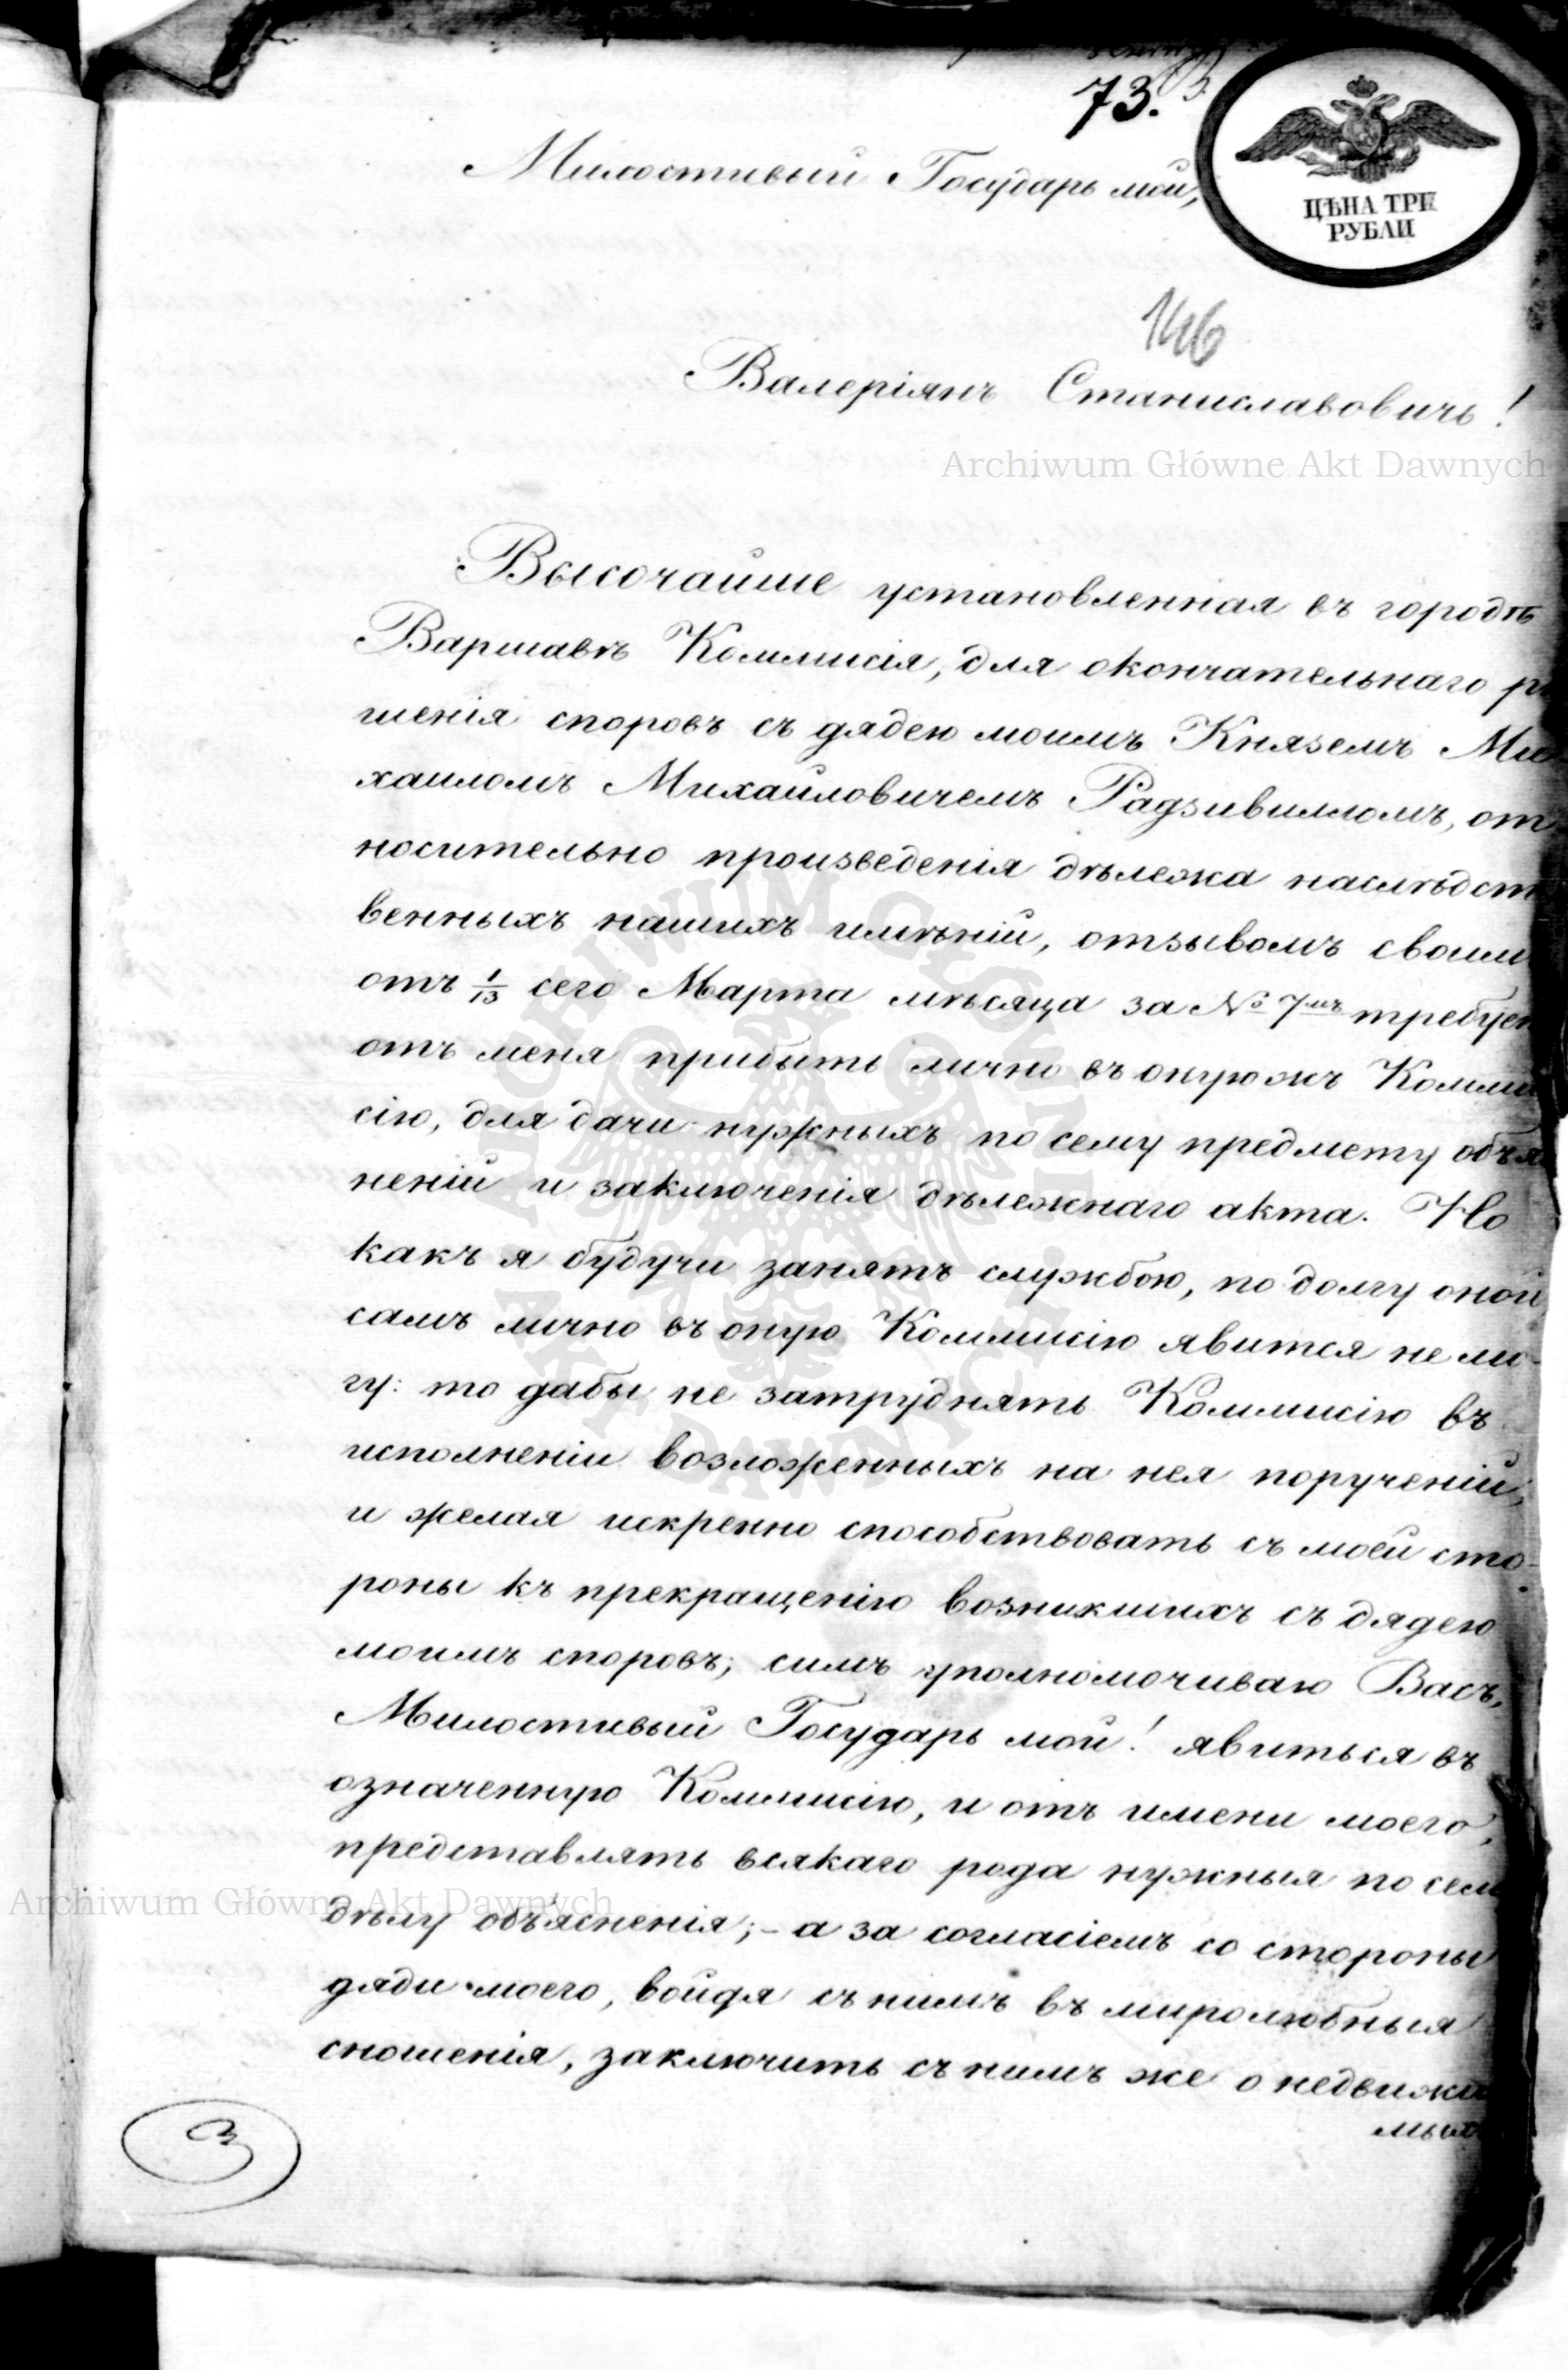 73.
Милостивый Государь мой,
ЦѢНА ТРИ
РУБЛИ
146
Валеріянъ Станиславовичь!
Archiwum Główne Akt Dawnych
Высочайше установленная въ городѣ
Варшавѣ Коммисія, для окончательнаго рѣ
шенія споровъ съ дядею моимъ Княземъ Ми
хаиломъ Михайловичемъ Радзивилломъ, от
носительно произведенія дѣлежа наслѣдст
венныхъ нашихъ имѣній, отзывомъ своим
отъ 1/13 сего Марта мѣсяца за № 7мъ требует
отъ меня прибыть лично въ онуюжъ Комми
сію, для дачи нужныхъ по сему предмету объя
неній и заключенія дѣлежнаго акта. Но
какъ я будучи занятъ службою, по долгу оной
самъ лично въ оную Коммисію явится не мо-
гу: то дабы не затруднять Коммисію въ
исполненіи возложенныхъ на нея порученій,
и желая искренно способствовать съ моей сто-
роны къ прекращенію возникшихъ съ дядею
моимъ споровъ; симъ уполномочиваю Васъ,
Милостивый Государь мой! явиться въ
означенную Коммисію, и отъ имени моего,
представлять всякаго рода нужныя по сем
Archiwum Główne Akt Dawnych
дѣлу объясненія;- а за согласіемъ со стороны
дяди моего, войдя съ нимъ въ миролюбныя
сношенія, заключить съ нимъ же о недвижи
мых
3
ARCHIWUM GŁÓWNE AKT DAWNYCH